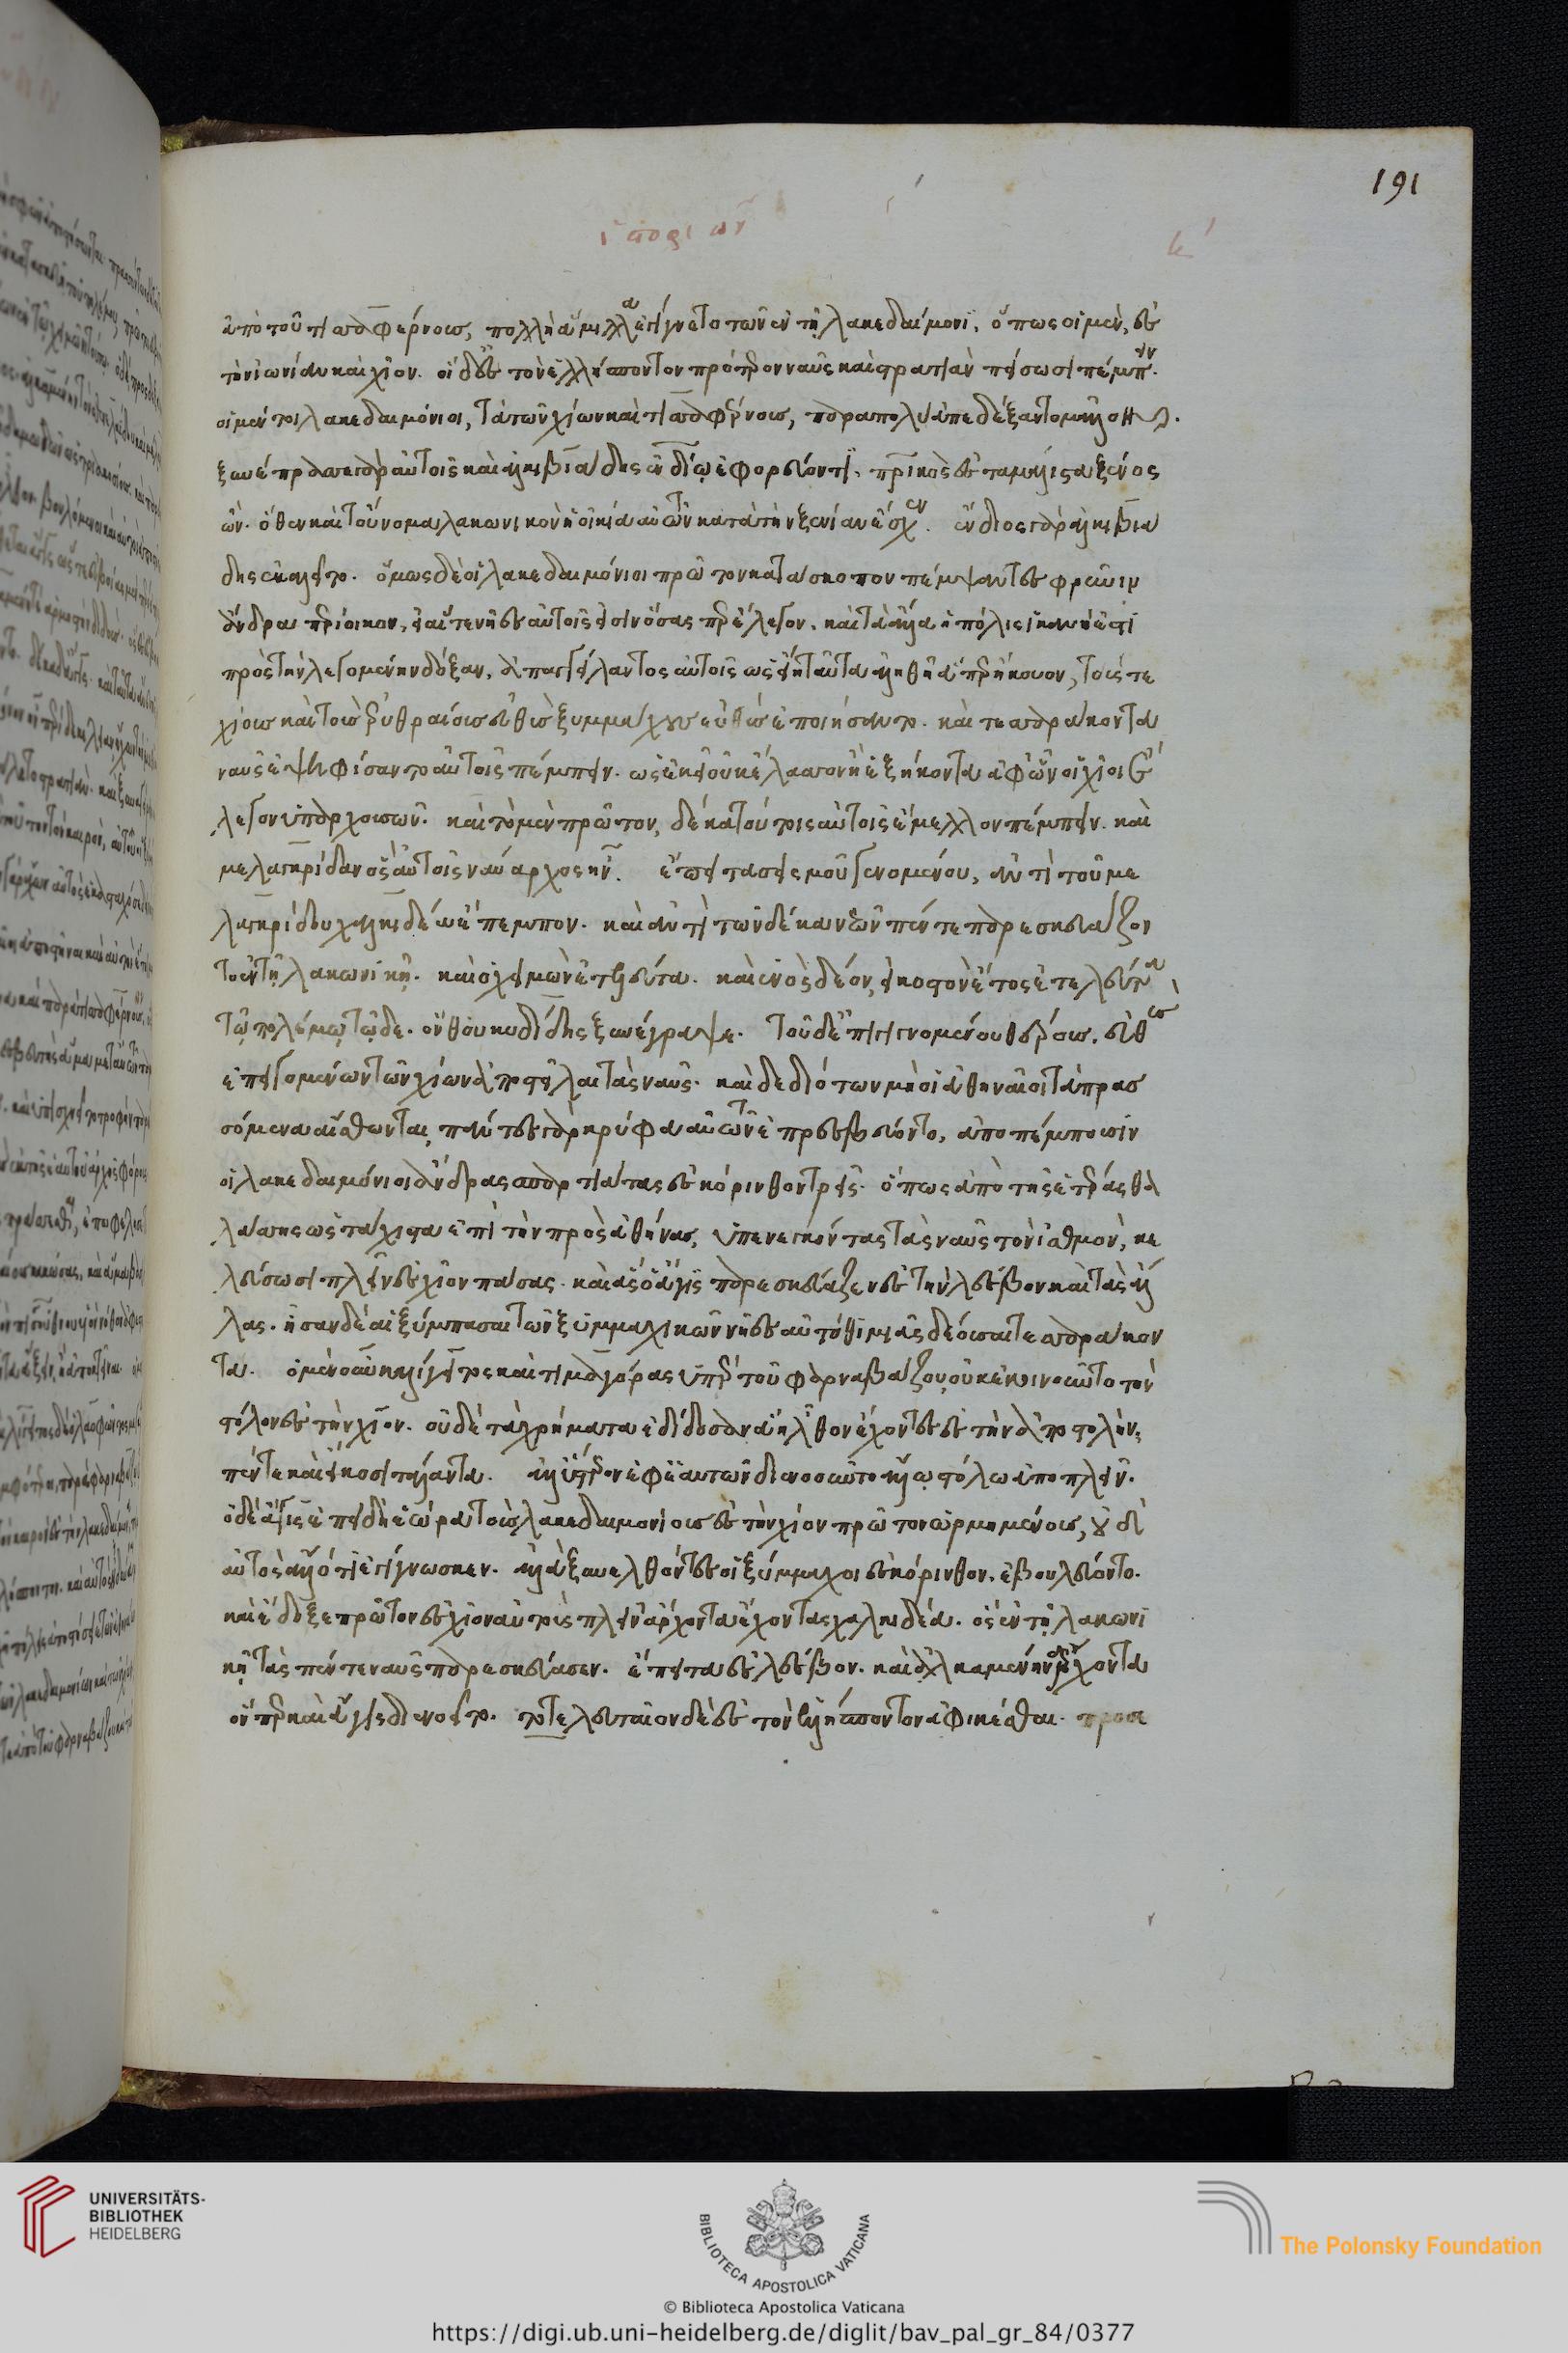 ἱστοριῶν η´
ἀπὸ τοῦ τισσαφέρνους, πολλὴ ἅμιλλα ἐγίγνετο τῶν ἐν τῇ λακεδαίμονι, ὅπως οἱ μὲν, ἐς
τὴν ἰωνίαν καὶ χίον. οἱ δ' ἐς τὸν ἑλλήσποντον πρότερον ναῦς καὶ στρατιὰν πείσωσι πέμπειν.
οἱ μέντοι λακεδαιμόνιοι, τὰ τῶν χίων καὶ τισσαφέρνους, παραπολὺ ἀπεδέξαντο μᾶλλον.
ξυνέπρασσε γὰρ αὐτοῖς καὶ ἀλκιβιάδης ἐνδίῳ ἐφορεύοντι, πατρικὸς ἐς ταμάλιστα ξένος
ὤν. ὅθεν καὶ τοὔνομα λακωνικὸν ἡ οἰκία αὐτῶν κατὰ τὴν ξενίαν ἔσχεν. ἔνδιος γὰρ ἀλκιβιά
δης ἐκαλεῖτο. ὅμως δὲ οἱ λακεδαιμόνιοι πρῶτον κατάσκοπον πέμψαντες φρῦνιν
ἄνδρα περίοικον, εἰ αἵ τε νῆες αὐτοῖς εἰσὶν ὅσας περ ἔλεγον. καὶ τὰ ἄλλα ἡ πόλις ἱκανή ἐστι
πρὸς τὴν λεγομένην δόξαν, ἀπαγγείλαντος αὐτοῖς ὡς εἴη ταῦτα ἀληθῆ ἅπερ ἤκουον, τούς τε
χίους καὶ τοὺς ἐρυθραίους εὐθὺς ξυμμάχους εὐθὺς ἐποιήσαντο. καὶ τεσσαράκοντα
ναῦς ἐψηφίσαντο αὐτοῖς πέμπειν. ὡς ἐκεῖ οὐκ ἔλασσον ἢ ἑξήκοντα ἀφ' ὧν οἱ χῖοι ἔ
λεγον ὑπαρχουσῶν. καὶ τὸ μὲν πρῶτον, δέκα τούτοις αὐτοῖς ἔμελλον πέμπειν. καὶ
μελαγκρίδαν ὃς αὐτοῖς ναύαρχος ἦν. ἔπειτα σεισμοῦ γενομένου, ἀντὶ τοῦ με
λαγκρίδου χαλκιδέα ἔπεμπον. καὶ ἀντὶ τῶν δέκα νεῶν πέντε παρεσκευάζον
το ἐν τῇ λακωνικῇ. καὶ ὁ χειμὼν ἐτελεύτα. καὶ ἑνὸς δέον, εἰκοστὸν ἔτος ἐτελεύτα
τῷ πολέμῳ τῷδε. ὃν θουκυδίδης ξυνέγραψε. Τοῦ δ' ἐπιγιγνομένου θέρους, εὐθὺς
ἐπειγομένων τῶν χίων ἀποστεῖλαι τὰς ναῦς. καὶ δεδιότων μὴ οἱ ἀθηναῖοι τὰ πρασ
σόμενα αἴσθωνται, πάντες γὰρ κρύφα αὐτῶν ἐπρεσβεύοντο, ἀποπέμπουσιν
οἱ λακεδαιμόνιοι ἄνδρας σπαρτιάτας ἐς κόρινθον τρεῖς. ὅπως ἀπὸ τῆς ἑτέρας θα
λάσσης ὡς τάχιστα ἐπὶ τὴν πρὸς ἀθήνας, ὑπενεγκόντας τὰς ναῦς τὸν ἰσθμὸν, κε
λεύσωσι πλεῖν ἐς χίον πάσας. καὶ ἃς ὁ ἆγις παρεσκεύαζεν ἐς τὴν λέσβον καὶ τὰς ἄλ
λας. ἦσαν δὲ αἱ ξύμπασαι τῶν ξυμμαχικῶν νῆες αὐτόθι μιᾶς δέουσαι τεσσαράκον
τα. ὁ μὲν οὖν καλλίγειτος καὶ τιμαγόρας ὑπὲρ τοῦ φαρναβάζου, οὐκ ἐκοινοῦντο τὸν
στόλον ἐς τὴν χίον. οὐδὲ τὰ χρήματα ἐδίδοσαν ἃ ἦλθον ἔχοντες ἐς τὴν ἀποστολὴν,
πέντε καὶ εἴκοσι τάλαντα. ἀλλ' ὕστερον ἐφ' ἑαυτῶν διενοοῦντο ἄλλῳ στόλῳ ἀποπλεῖν.
ὁ δὲ ἆγις ἐπειδὴ ἑώρα τοὺς λακεδαιμονίους ἐς τὴν χίον πρῶτον ὡρμημένους, οὐδ'
αὐτὸς ἄλλό τι ἐγίγνωσκεν. ἀλλὰ ξυνελθόντες οἱ ξύμμαχοι ἐς κόρινθον, ἐβουλεύοντο.
καὶ ἔδοξε πρῶτον ἐς χίον αὐτοὺς πλεῖν ἄρχοντα ἔχοντας χαλκιδέα. ὃς ἐν τῇ λακωνι
κῇ τὰς πέντε ναῦς παρεσκεύασεν. ἔπειτα ἐς λέσβον. καὶ ἀλκαμένην ἄρχοντα
ὅνπερ καὶ ἆγις διενοεῖτο. τὸ τελευταῖον δὲ ἐς τὸν ἑλλήσποντον ἀφικέσθαι. προσε
191
UNIVERSITÄTS-
BIBLIOTHEK
HEIDELBERG
BIBLIOTHECA APOSTOLICA VATICANA
The Polonsky Foundation
© Biblioteca Apostolica Vaticana
https://digi.ub.uni-heidelberg.de/diglit/bav_pal_gr_84/0377